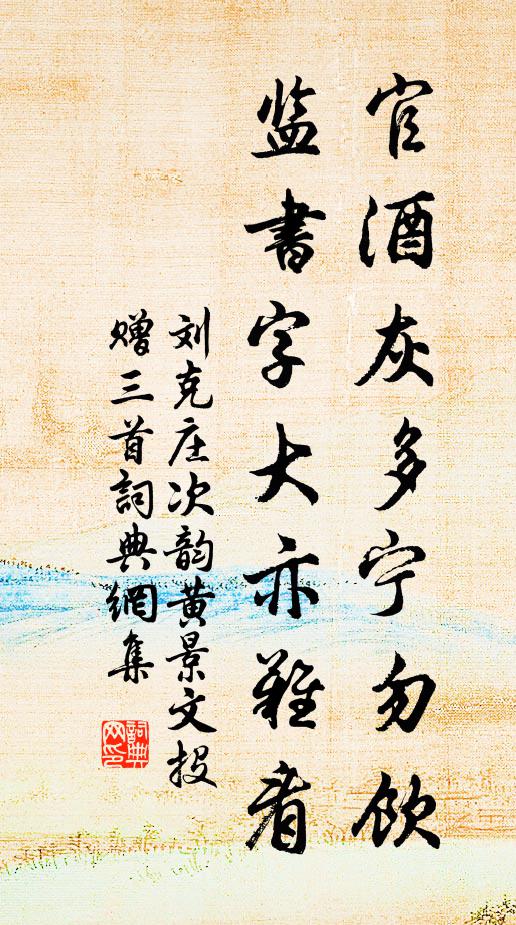 官酒灰多宁勿饮
监书字大亦难看
刘克庄次韵黄景文投
赠三首詞典網集
詞典网印